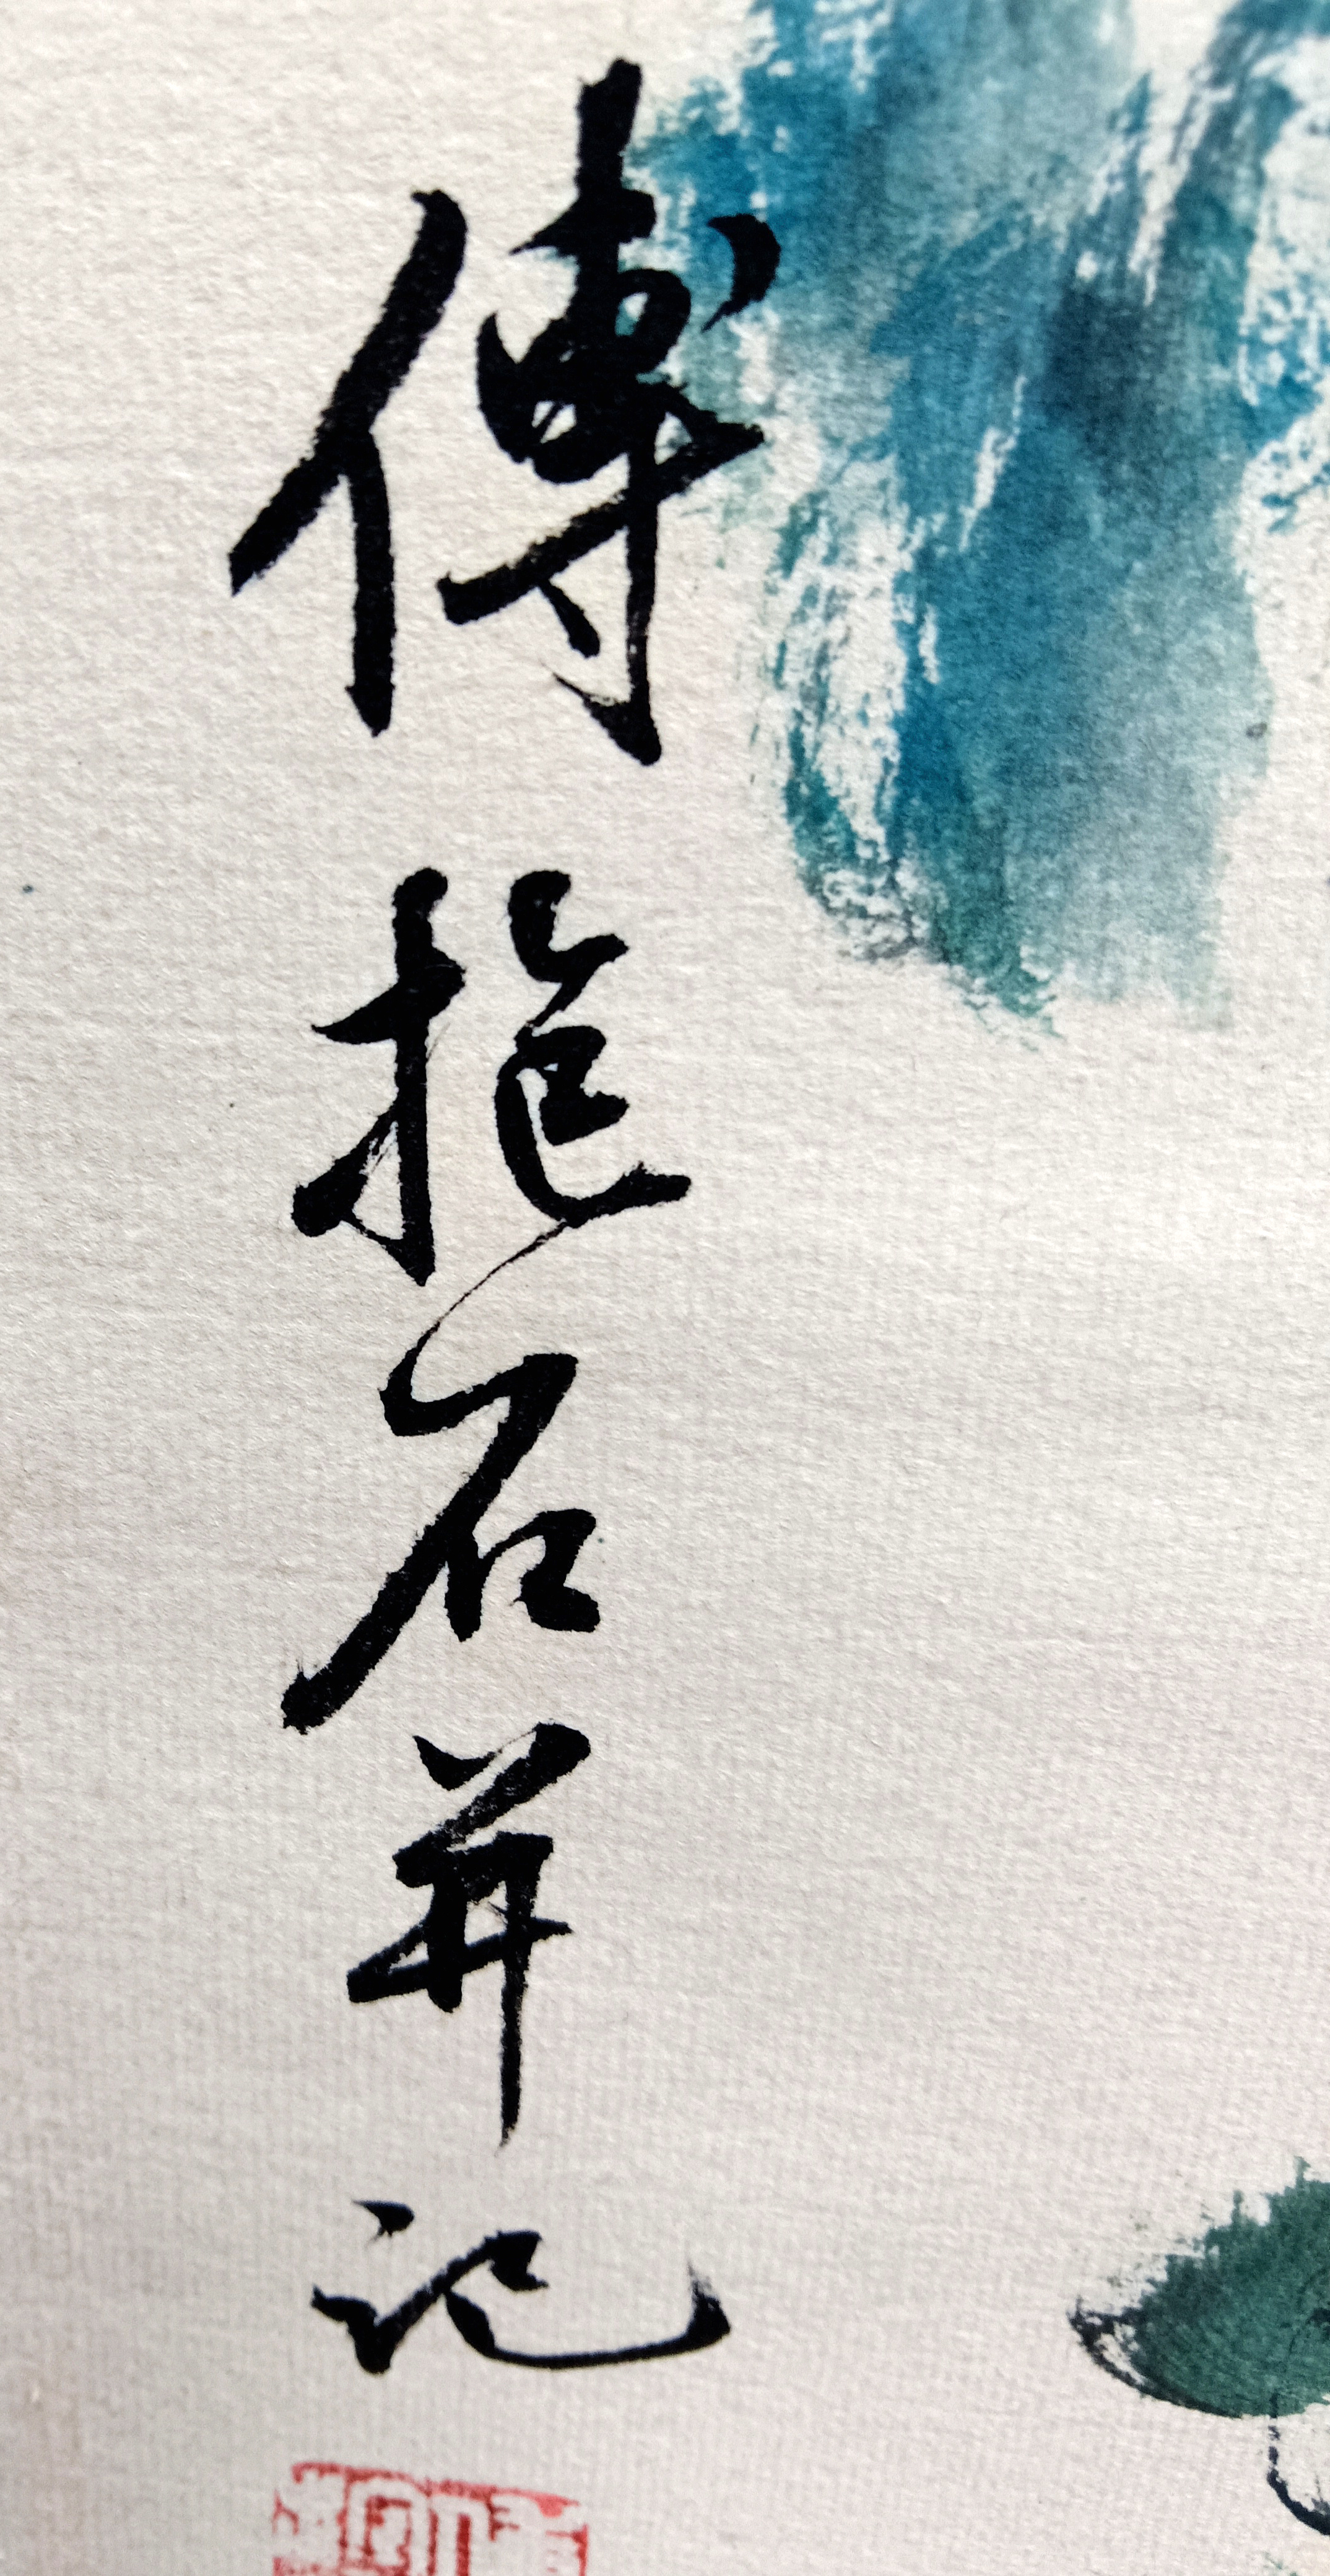 傅抱石并记